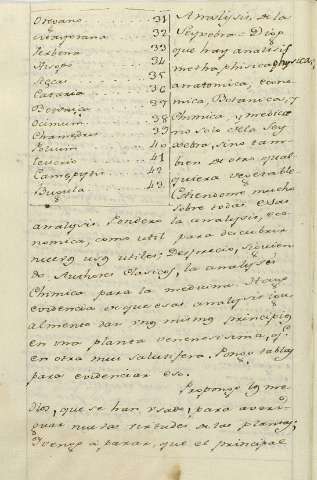 Oregano . . . . . 31
Mayorana . . . . 32
Verbena . . . . . 33
Hisopo . . . . . 34
Salvia . . . . . 35
Cataria . . . . . 36
Betonica . . . . 37
Ocimum . . . . . 38
Chamedris . . . . 39
Polium . . . . . 40
Teucrio . . . . . 41
Camepytis . . . . 42
Bugula . . . . . 43
Analysis de la
Seyxebra. Digo
que hay analisis
metaphisica, physica,
anatomica, econo-
mica, Botanica, y
Chimica, y medica
no solo de la Sey
xebra, sino tam-
bien de otra qual
quiera vegetable.
Estiendome mucho
sobre todas estas
analysis. Pondero la analysis, eco
nomica, como util para descubrir
nuevos usos utiles. Desprecio, siguien
do Authores Clasicos, la analysis
Chimica para la medicina. Hago
evidencia de que esas analysis igu
almente dan unos mismos principios
en una planta venenosissima, q.e
en otra muy salutifera. Pongo tablas
para evidenciar eso.
Propongo los me
dios, que se han usado, para averi
guar nuevas virtudes de las plantas;
y vengo á parar, que el principal